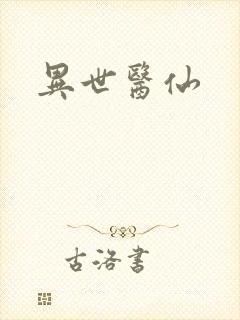 異世醫仙
古洛書